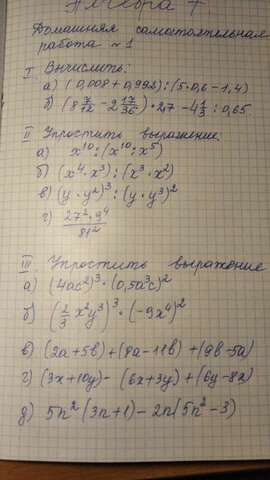 Алгебра 7
Домашняя самостоятельная
работа ~ 1
I Вычислить:
а) (0,008 + 0,992) : (5 · 0,6 - 1,4)
б) (8 7/12 - 2 17/36) · 2,7 - 4 1/3 : 0,65
II Упростить выражение.
а) x¹⁰ : (x¹⁰ : x⁵)
б) (x⁴ · x³) : (x³ · x²)
в) (y · y²)³ : (y · y³)²
г) 27² · 9⁴ / 81²
III. Упростить выражение
а) (4ac²)³ · (0,5a³c)²
б) (2/3 x²y³)³ · (-9x⁴)²
в) (2a + 5b) + (8a - 11b) + (9b - 5a)
г) (3x + 10y) - (6x + 3y) + (6y - 8x)
д) 5n² (3n + 1) - 2n (5n² - 3)